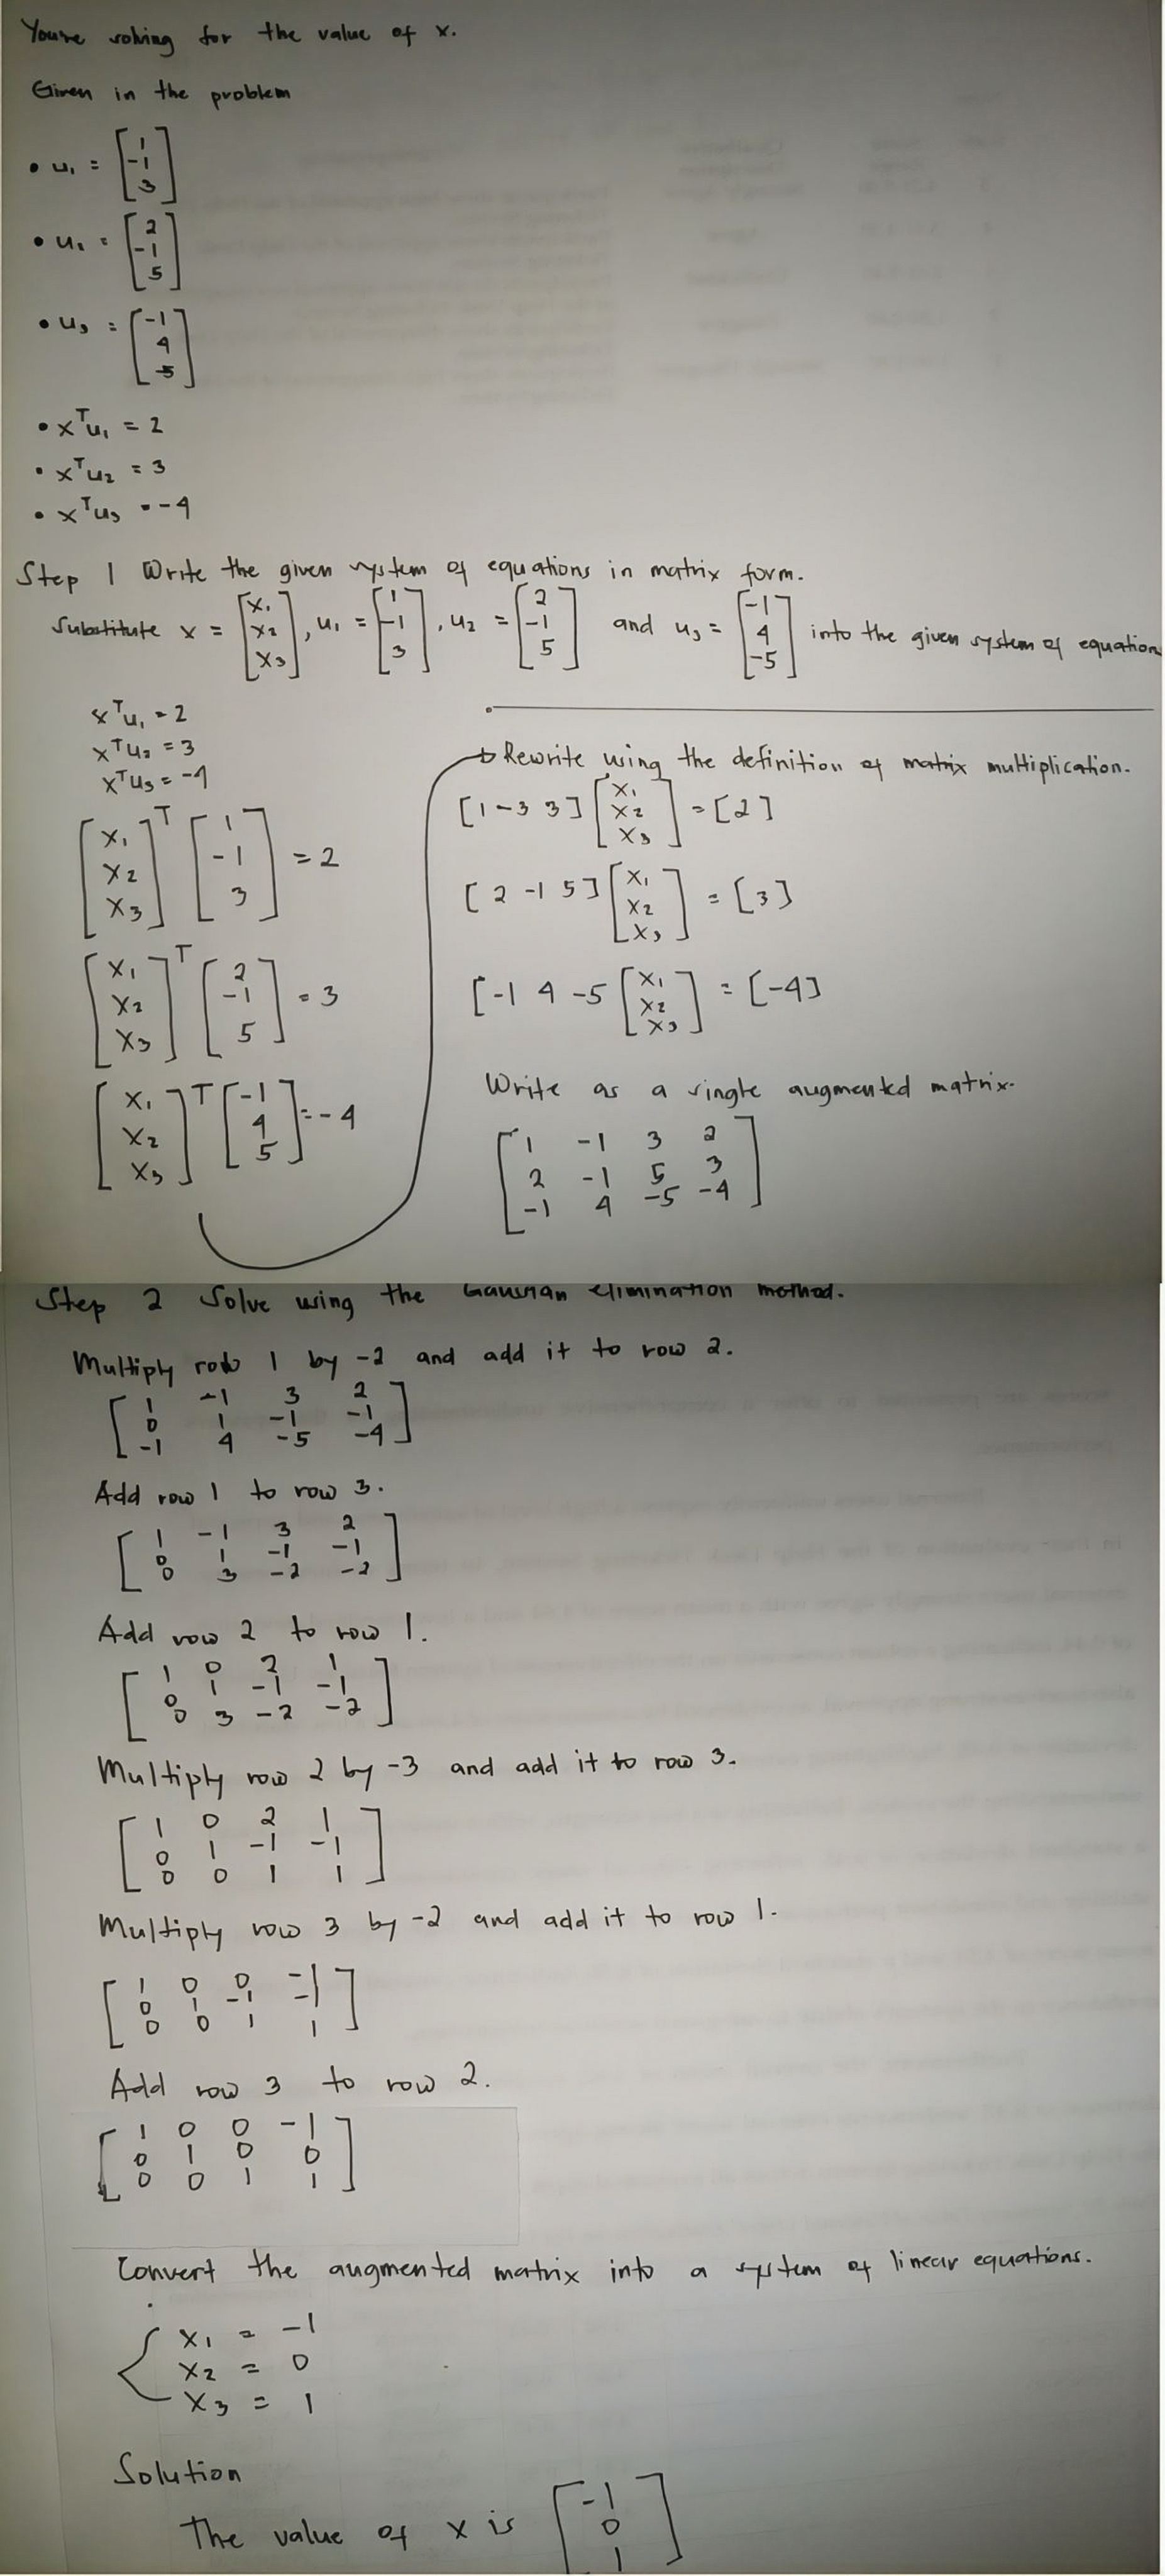 You're solving for the value of x.
Given in the problem
• u₁ = [1 -1 3]
• u₂ = [2 -1 5]
• u₃ = [-1 4 -5]
• xᵀu₁ = 2
• xᵀu₂ = 3
• xᵀu₃ = -4
Step 1 Write the given system of equations in matrix form.
Substitute x = [x₁ x₂ x₃], u₁ = [1 -1 3], u₂ = [2 -1 5] and u₃ = [-1 4 -5] into the given system of equation
xᵀu₁ = 2
xᵀu₂ = 3
xᵀu₃ = -4
[x₁ x₂ x₃]ᵀ [1 -1 3] = 2
[x₁ x₂ x₃]ᵀ [2 -1 5] = 3
[x₁ x₂ x₃]ᵀ [-1 4 5] = -4
→ Rewrite using the definition of matrix multiplication.
[1 -3 3] [x₁ x₂ x₃] = [2]
[2 -1 5] [x₁ x₂ x₃] = [3]
[-1 4 -5 [x₁ x₂ x₃] = [-4]
Write as a single augmented matrix.
[1 -1 3 2
2 -1 5 3
-1 4 -5 -4]
Step 2 Solve using the Gaussian elimination method.
Multiply row 1 by -2 and add it to row 2.
[1 -1 3 2
0 1 -1 -1
-1 4 -5 -4]
Add row 1 to row 3.
[1 -1 3 2
0 1 -1 -1
0 3 -2 -2]
Add row 2 to row 1.
[1 0 2 1
0 1 -1 -1
0 3 -2 -2]
Multiply row 2 by -3 and add it to row 3.
[1 0 2 1
0 1 -1 -1
0 0 1 1]
Multiply row 3 by -2 and add it to row 1.
[1 0 0 -1
0 1 -1 -1
0 0 1 1]
Add row 3 to row 2.
[1 0 0 -1
0 1 0 0
0 0 1 1]
Convert the augmented matrix into a system of linear equations.
{ x₁ = -1
x₂ = 0
x₃ = 1
Solution
The value of x is [-1 0 1]